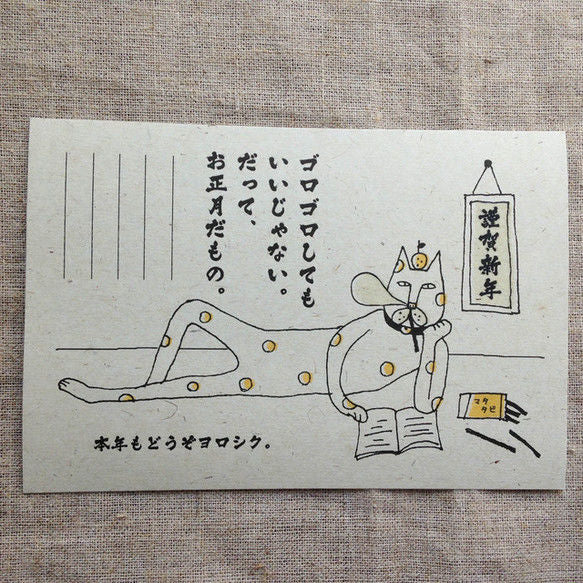 謹賀新年
ゴロゴロしても
いいじゃない。
だって、
お正月だもの。
マタ
タビ
本年もどうぞヨロシク。